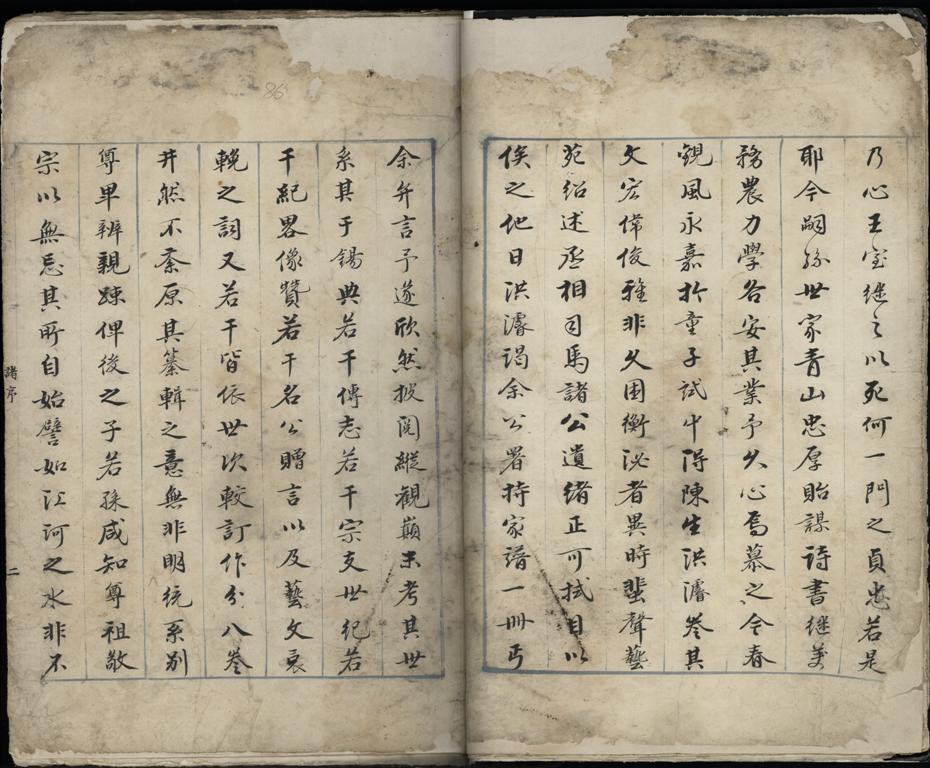 乃心王室继之以死何一門之貞忠若是
耶今嗣孫世家青山忠厚貽謀詩書继美
務農力學各安其業予久心焉慕之今春
觀風永嘉扵童子試中得陳生洪濬卷其
文宏偉俊雅非久困衡泌者異時蜚聲藝
苑紹述丞相司馬諸公遺緒正可拭目以
俟之他日洪濬謁余公署持家譜一冊丐
余弁言予遂欣然披閱縱觀巔末考其世
系其于錫典若干傳志若干宗支世紀若
干紀畧像贊若干名公贈言以及藝文哀
輓之詞又若干皆依世次較訂作分八卷
井然不紊原其纂輯之意無非明统系别
尊卑辨親踈俾後之子若孫咸知尊祖敬
宗以無忘其所自始譬如江河之水非不
諸序
二
86